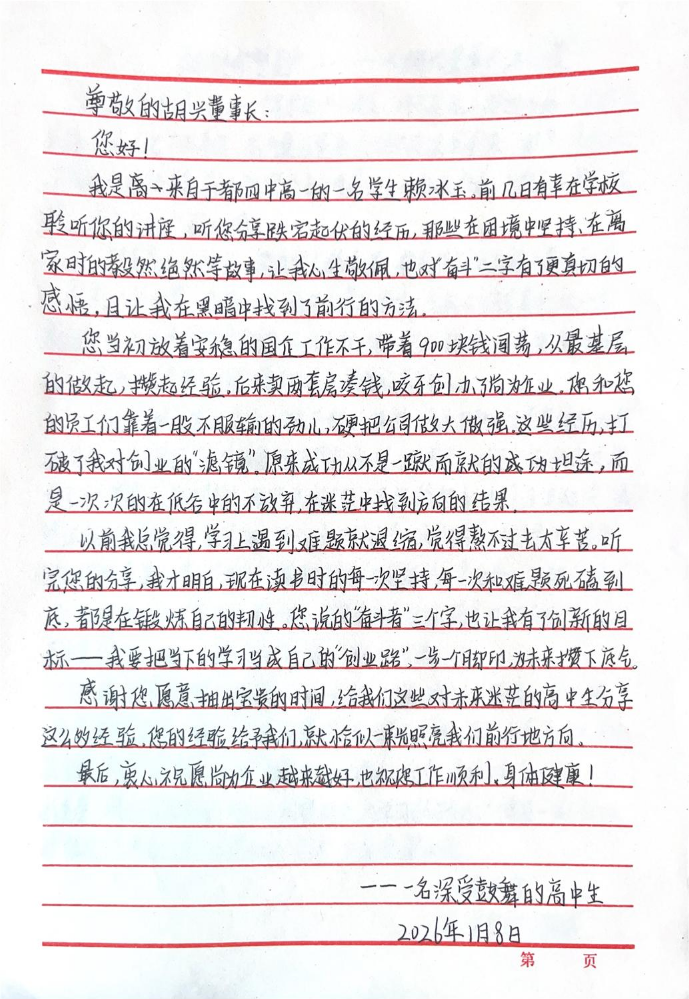 尊敬的胡兴董事长:
您好!
我是来自于都四中高一的一名学生赖冰玉。前几日有幸在学校
聆听您的讲座,听您分享跌宕起伏的经历,那些在困境中坚持、在离
家时的毅然绝然等故事,让我心生敬佩,也对“奋斗”二字有了更真切的
感悟,且让我在黑暗中找到了前行的方法.
您当初放着安稳的国企工作不干,带着900块钱闯荡,从最基层
的做起,攒起经验。后来卖两套房凑钱,咬牙创办了尚为企业。您和您
的员工们靠着一股不服输的劲儿,硬把公司做大做强。这些经历,打
破了我对创业的“滤镜”。原来成功从不是一蹴而就的成功坦途,而
是一次次的在低谷中的不放弃,在迷茫中找到方向的结果.
以前我总觉得,学习上遇到难题就退缩,觉得熬不过去太辛苦。听
完您的分享,我才明白,现在读书时的每一次坚持,每一次和难题死磕到
底,都是在锻炼自己的韧性。您说的“奋斗者”三个字,也让我有了创新的目
标——我要把当下的学习当成自己的“创业路”,一步一个脚印,为未来攒下底气。
感谢您愿意抽出宝贵的时间,给我们这些对未来迷茫的高中生分享
这么的经验,您的经验给予我们,就恰似一束光照亮我们前行地方向。
最后,衷心祝愿尚为企业越来越好,也祝您工作顺利、身体健康!
———一名深受鼓舞的高中生
2026年1月8日
第 页